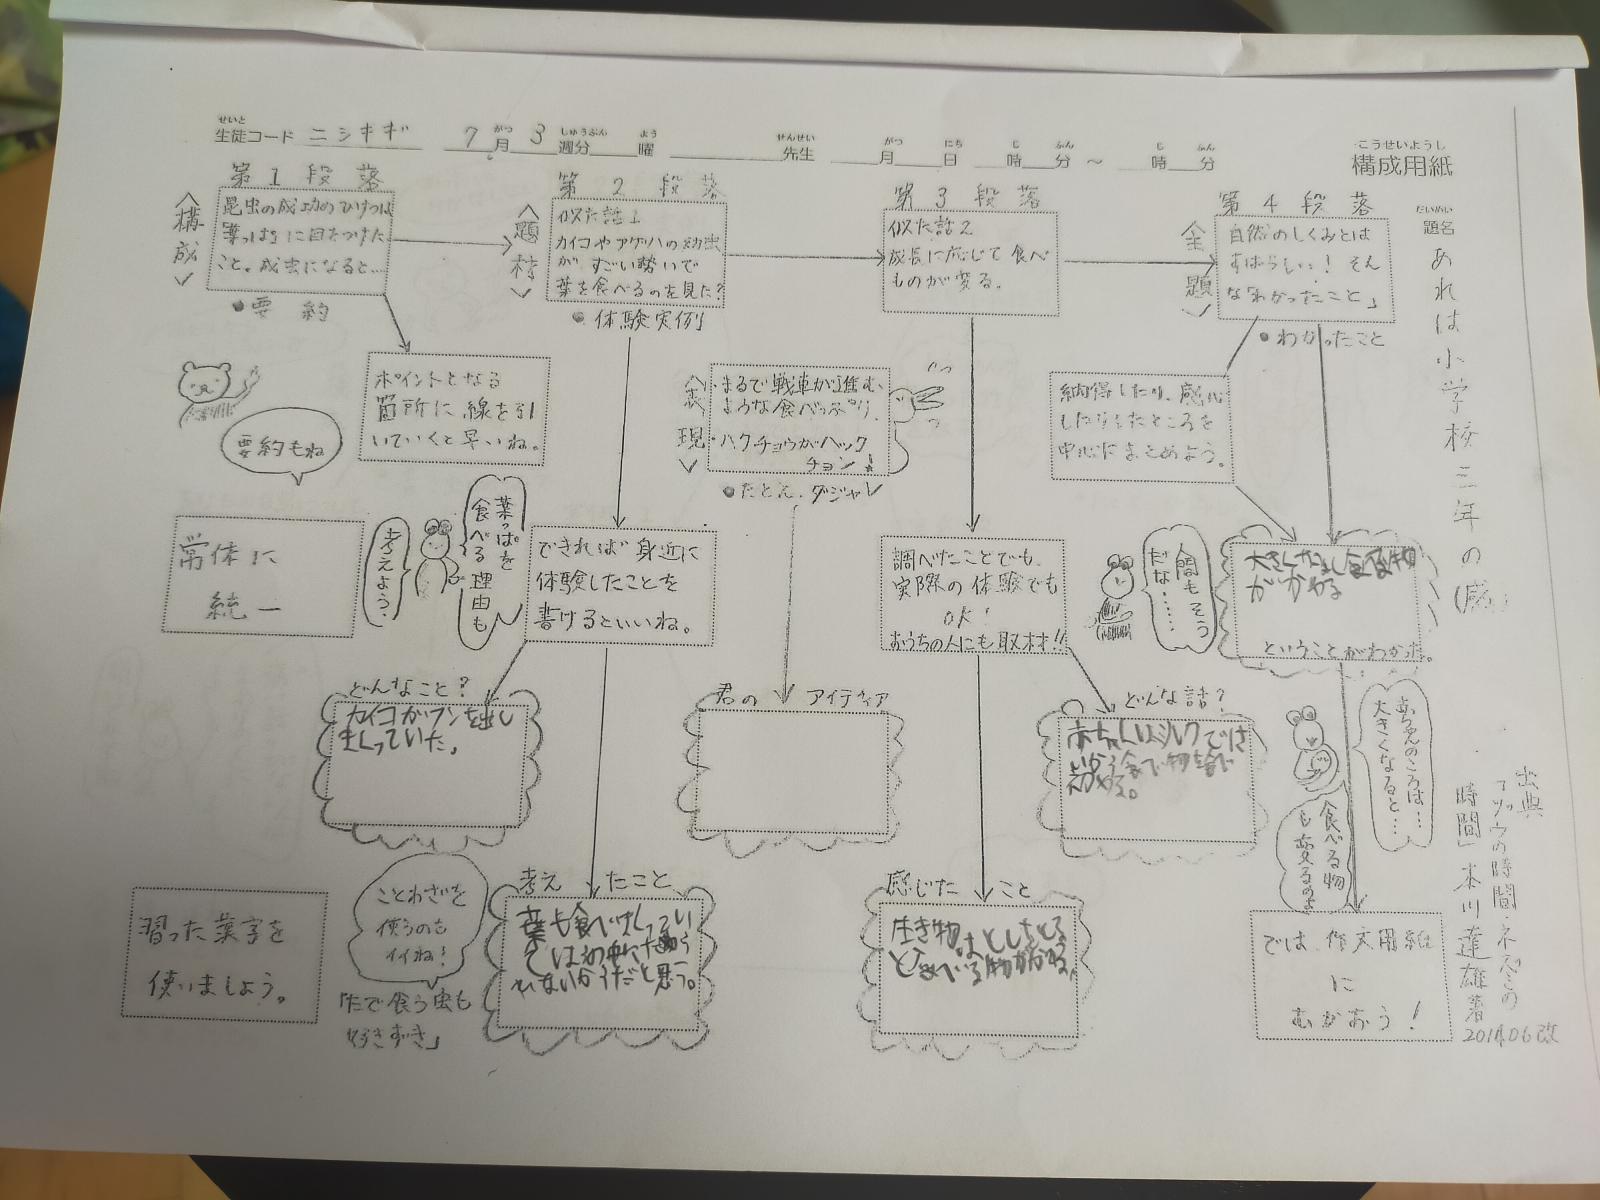 構成用紙
こうせいようし
生徒コード ニシキギ 7月3週分 曜 先生 月 日 時 分 ～ 時 分
題名
だいめい
あれは小学校三年の(感)
出典
『ゾウの時間・ネズミの
時間』 本川達雄著
2014.06改
第1段落
<構成>
昆虫の成功のひけつは
「葉っぱ」に目をつけた
こと。成虫になると…
●要約
ポイントとなる
箇所に線を引
いていくと早いね。
要約もね
常体に
統一
習った漢字を
使いましょう。
第2段落
<題材>
似た話1
カイコやアゲハの幼虫
が すごい勢いで
葉を食べるのを見た?
●体験実例
葉っぱを
食べる理由も
考えよう。
できれば身近に
体験したことを
書けるといいね。
どんなこと?
カイコがフンを出し
まくっていた。
考えたこと
ことわざを
使うのも
イイね!
「たで食う虫も
好きずき」
<表現>
まるで戦車が進む
ような食べっぷり。
・ハクチョウがハック
チョン!
●たとえ、ダジャレ
君の アイディア
第3段落
似た話2
成長に応じて食べ
ものが変る。
調べたことでも、
実際の体験でも
OK!
おうちの人にも取材!!
どんな話?
感じた こと
第4段落
<全題>
自然のしくみとは
すばらしい! そん
な「わかったこと」
●わかったこと
納得したり、感心
したりしたところを
中心にまとめよう。
人間もそう
だな……
ということがわかった。
赤ちゃんのころは…
大きくなると…
食べる物
も変るのよ
では、作文用紙
に
むかおう!